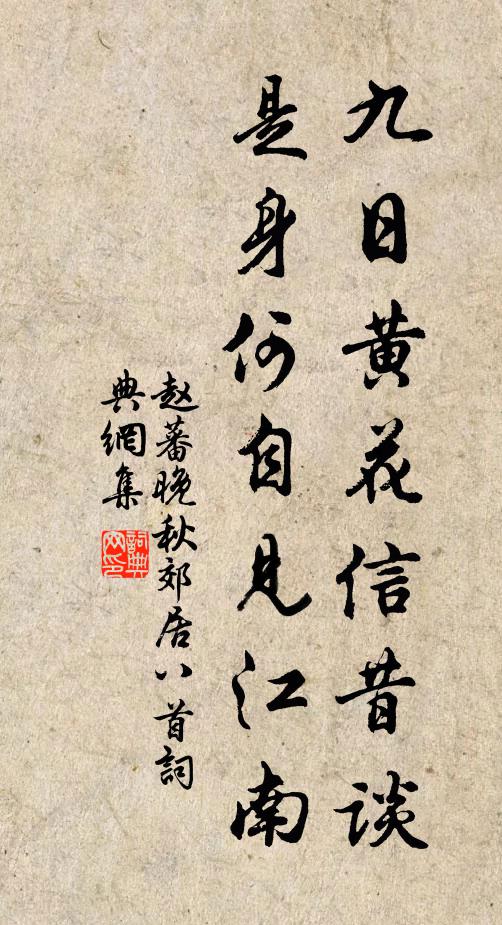 九日黄花信昔谈
是身何自见江南
赵蕃晚秋郊居八首詞
典網集
詞典网印